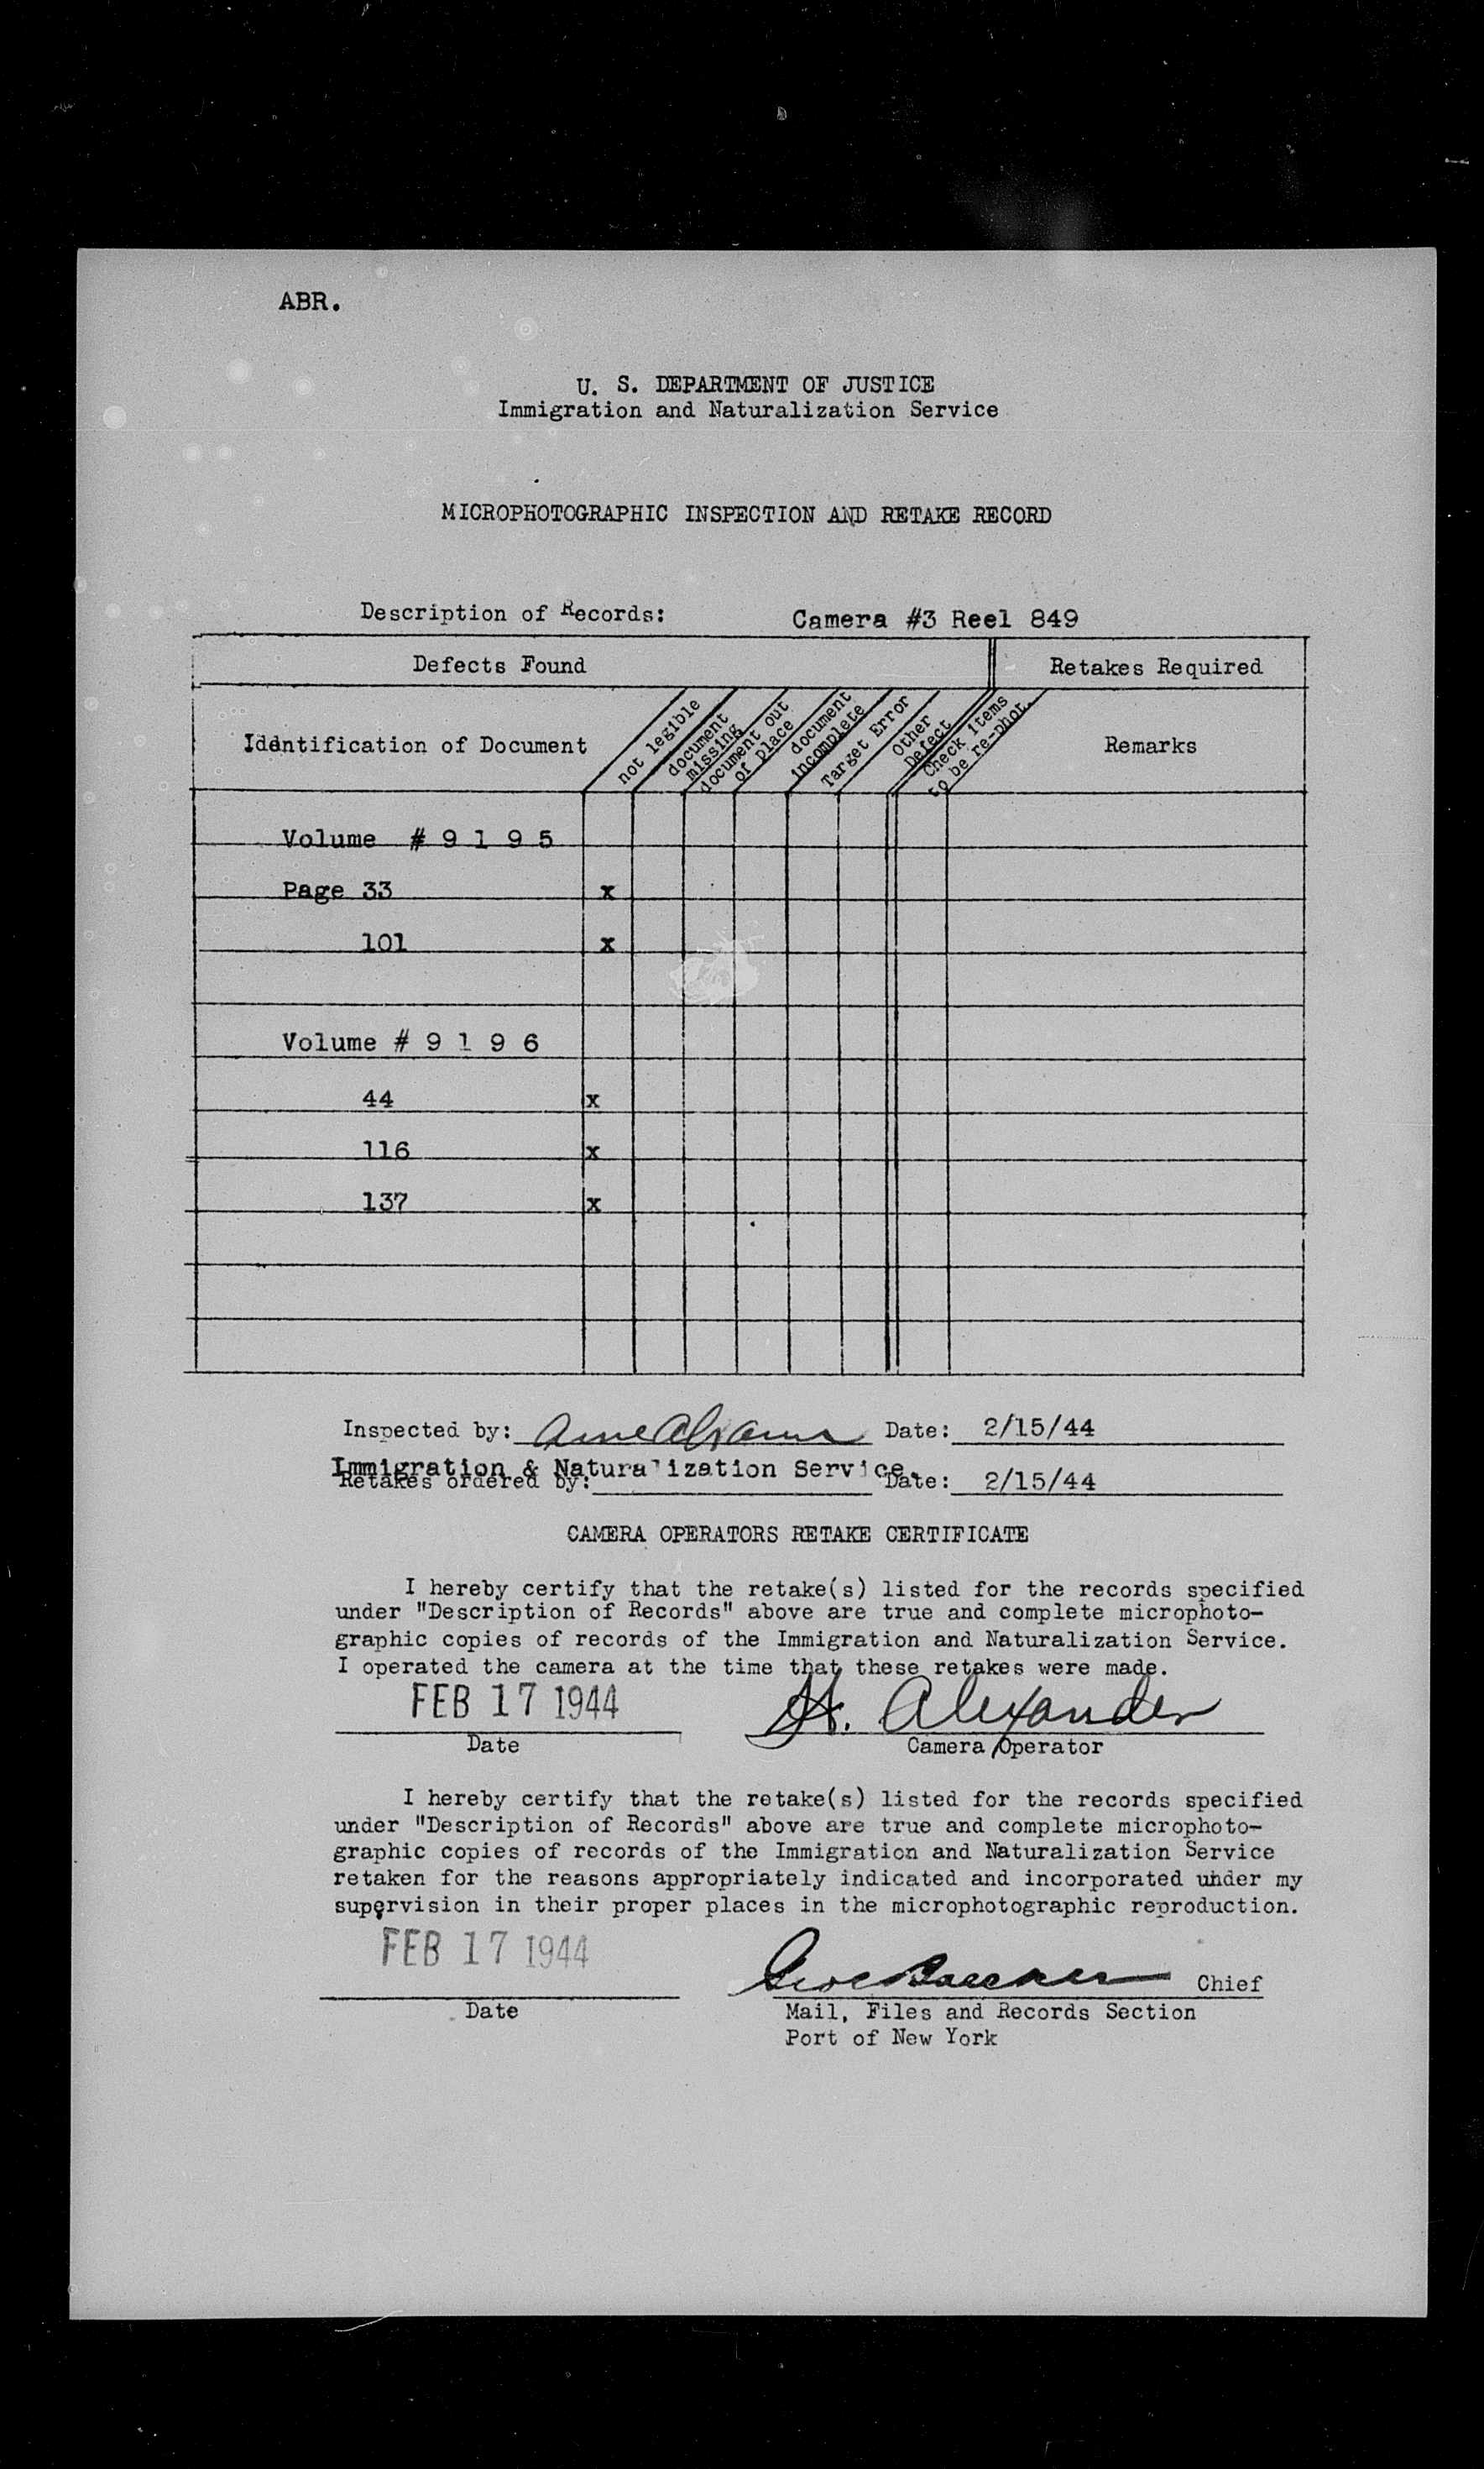 ABR.
U. S. DEPARTMENT OF JUSTICE
Immigration and Naturalization Service
MICROPHOTOGRAPHIC INSPECTION AND RETAKE RECORD
Description of Records: Camera #3 Reel 849
Defects Found Retakes Required
Identification of Document
not legible
document missing
document out of place
document incomplete
Target Error
Other Defect
Check items to be re-phot.
Remarks
Volume # 9 1 9 5
Page 33 x
101 x
Volume # 9 1 9 6
44 x
116 x
137 x
Inspected by: Date: 2/15/44
Immigration & Naturalization Service.
Retakes ordered by: Date: 2/15/44
CAMERA OPERATORS RETAKE CERTIFICATE
I hereby certify that the retake(s) listed for the records specified
under "Description of Records" above are true and complete microphoto-
graphic copies of records of the Immigration and Naturalization Service.
I operated the camera at the time that these retakes were made.
FEB 17 1944 H. Alexander
Date Camera Operator
I hereby certify that the retake(s) listed for the records specified
under "Description of Records" above are true and complete microphoto-
graphic copies of records of the Immigration and Naturalization Service
retaken for the reasons appropriately indicated and incorporated under my
supervision in their proper places in the microphotographic reproduction.
FEB 17 1944 Chief
Date Mail, Files and Records Section
Port of New York